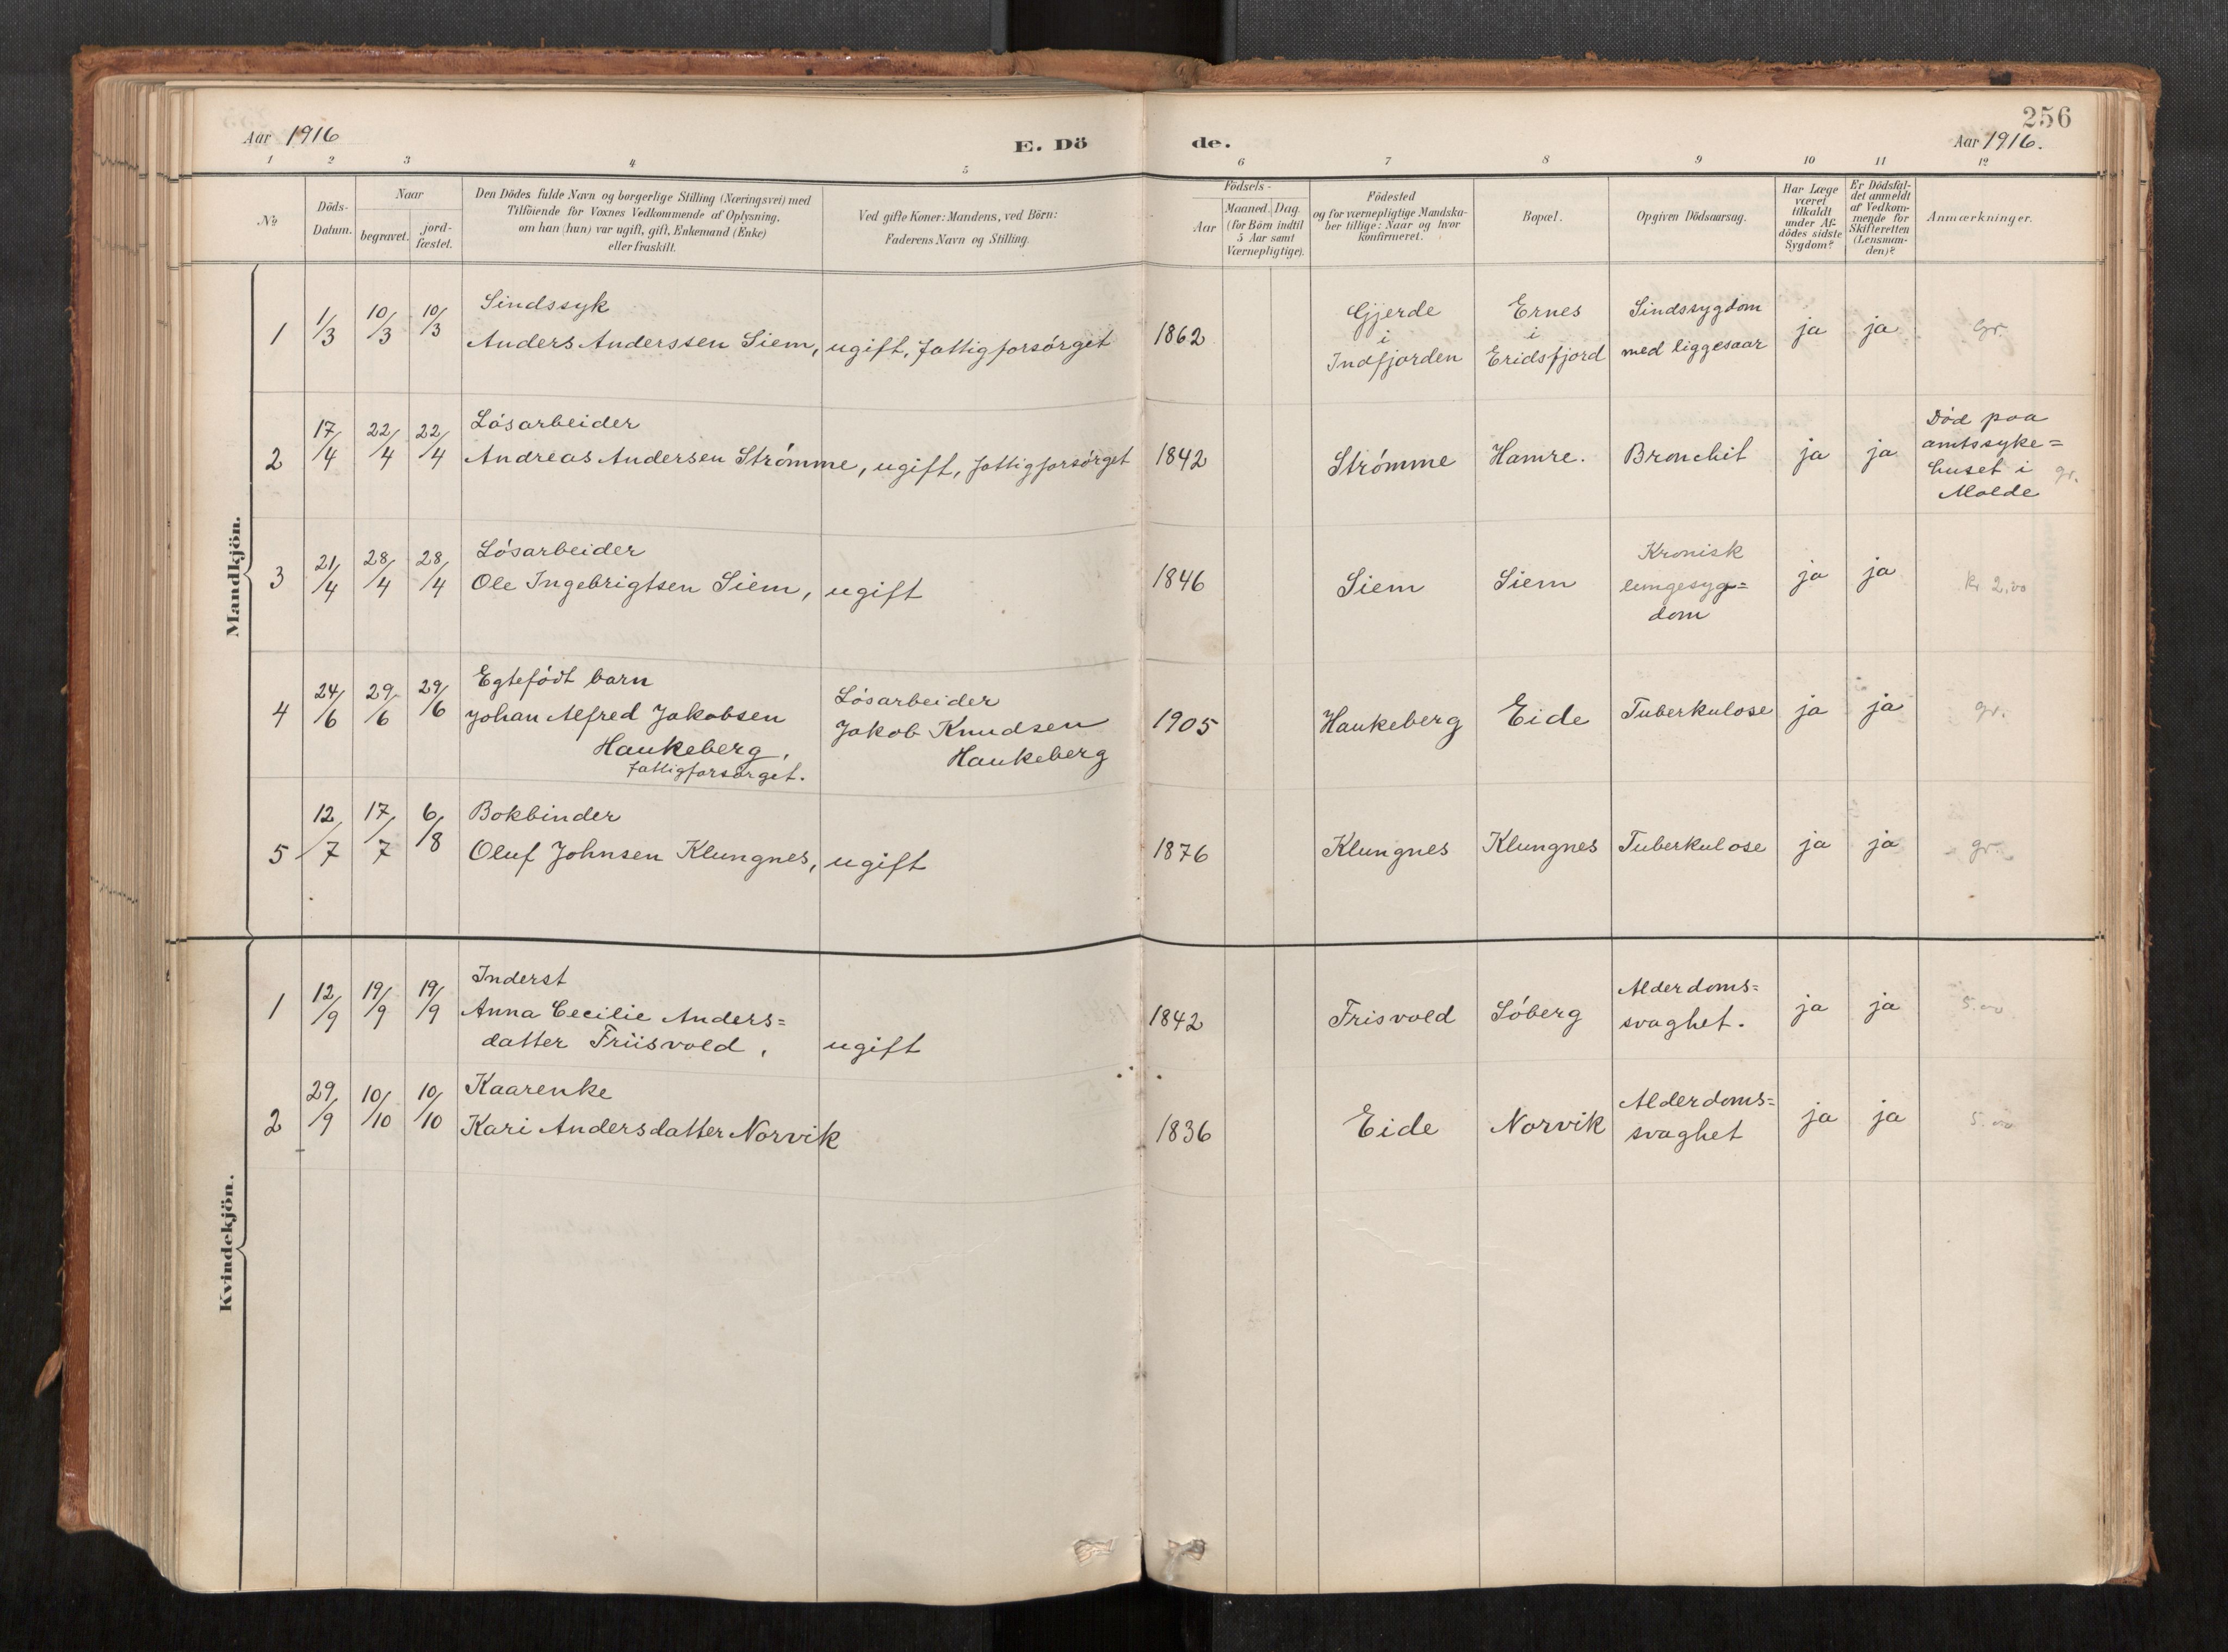 256
Aar 1916
E. Dö
de.
Aar 1916.
1 2 3 4 5 6 7 8 9 10 11 12
No
Döds-
Datum.
Naar
begravet.
jord-
fæstet.
Den Dödes fulde Navn og borgerlige Stilling (Næringsvei) med
Tilföiende for Voxnes Vedkommende af Oplysning,
om han (hun) var ugift, gift, Enkemand (Enke)
eller fraskilt.
Ved gifte Koner: Mandens, ved Börn:
Faderens Navn og Stilling.
Födsels-
Aar
Maaned. Dag.
(for Börn indtil
5 Aar samt
Værnepligtige).
Födested
og for værnepligtige Mandska-
ber tillige: Naar og hvor
konfirmeret.
Bopæl.
Opgiven Dödsaarsag.
Har Læge
været
tilkaldt
under Af-
dödes sidste
Sygdom?
Er Dödsfal-
det anmeldt
af Vedkom-
mende for
Skifteretten
(Lensman-
den)?
Anmærkninger.
Mandkjön.
1 1/3 10/3 10/3
Sindssyk
Anders Anderssen Siem, ugift, fattigforsórget
1862
Gjerde
i
Indfjorden
Ernes
i
Eridsfjord
Sindssygdom
med liggesaar
ja ja gr.
2 17/4 22/4 22/4
Lósarbeider
Andreas Andersen Strómme, ugift, fattigforsórget
1842 Strómme Hamre. Bronchit ja ja
Död paa
amtssyke=
huset i
Molde
gr.
3 21/4 28/4 28/4
Lósarbeider
Ole Ingebrigtsen Siem, ugift
1846 Siem Siem
Kronisk
lungesyg=
dom
ja ja kr 2,00
4 24/6 29/6 29/6
Egtefódt barn
Johan Alfred Jakobsen
Haukeberg,
fattigforsórget.
Lósarbeider
Jakob Knudsen
Haukeberg
1905 Haukeberg Eide Tuberkulose ja ja gr.
5 12/7 17/7 6/8
Bokbinder
Oluf Johnsen Klungnes, ugift
1876 Klungnes Klungnes Tuberkulose ja ja gr.
Kvindekjön.
1 12/9 19/9 19/9
Inderst
Anna Cecilie Anders=
datter Friisvold, ugift
1842 Frisvold Sóberg
Alderdoms=
svaghet.
ja ja 5.00
2 29/9 10/10 10/10
Kaarenke
Kari Andersdatter Norvik
1836 Eide Norvik
Alderdoms=
svaghet
ja ja 5.00